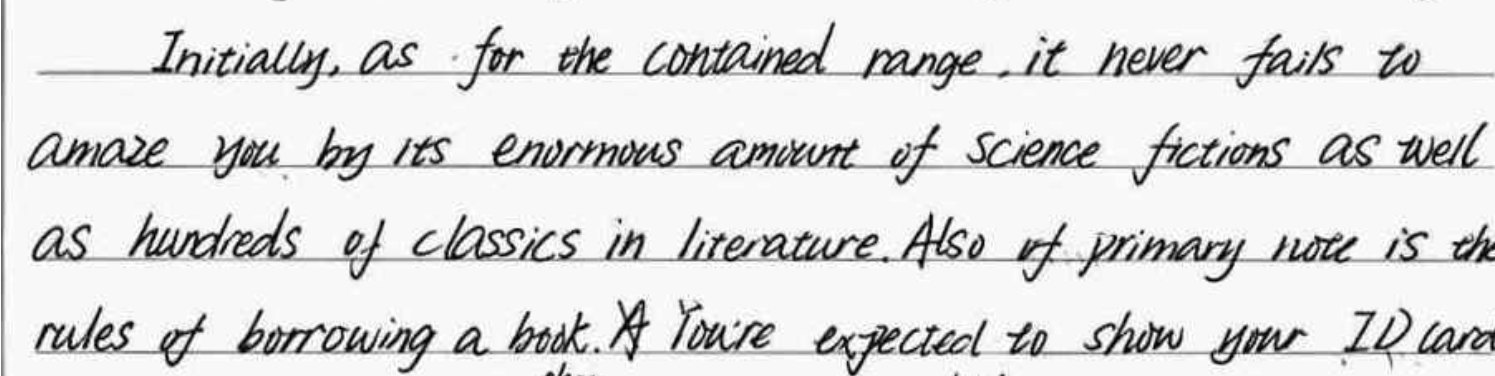 Initially, as for the contained range, it never fails to
amaze you by its enormous amount of science fictions as well
as hundreds of classics in literature. Also of primary note is the
rules of borrowing a book. You're expected to show your ID card